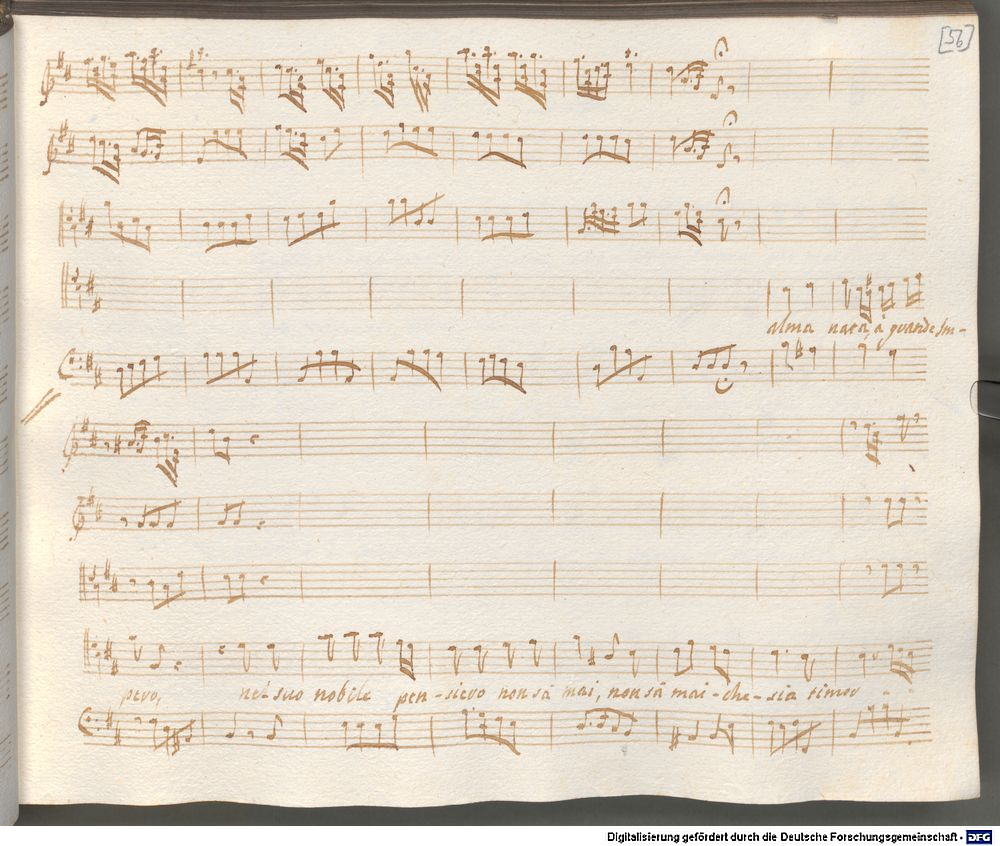 [56]
alma nata, à grande Im-
pero, nel suo nobile pen-siero non sà mai, non sà mai-che-sia timor
Digitalisierung gefördert durch die Deutsche Forschungsgemeinschaft - DFG